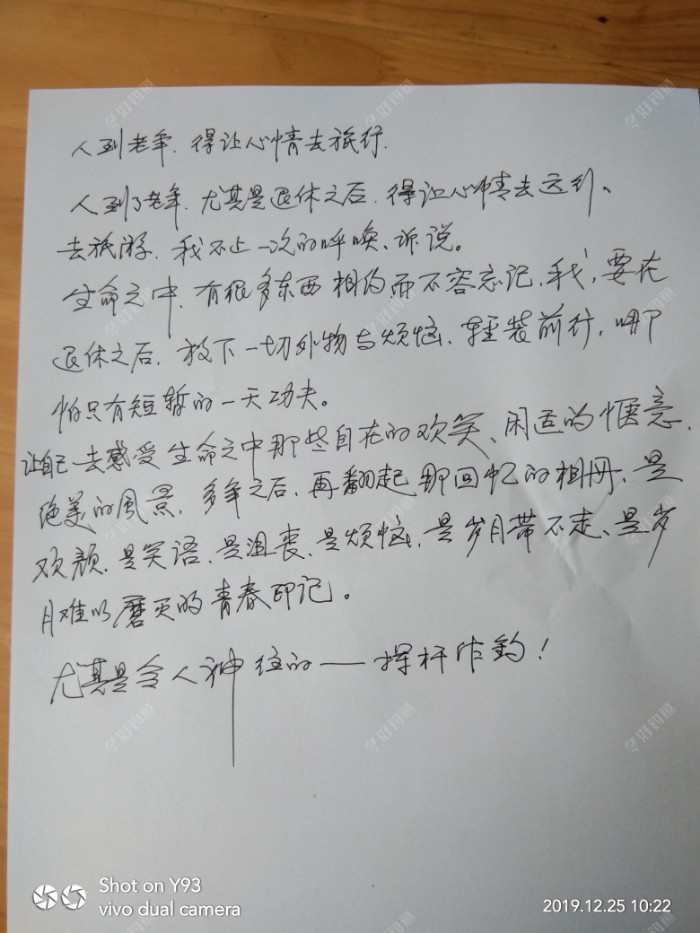 人到老年、得让心情去旅行.
人到了老年、尤其是退休之后、得让心情去远行、
去旅游、我不止一次的呼唤、诉说。
生命之中、有很多东西相约而不容忘记、我、要在
退休之后、放下一切外物与烦恼、轻装前行、哪
怕只有短暂的一天功夫。
让自己去感受生命之中那些自在的欢笑、闲适的惬意、
绝美的風景、多年之后、再翻起那回忆的相册、是
欢颜、是笑语、是沮丧、是烦恼、是岁月带不走、是岁
月难以磨灭的青春印记。
尤其是令人神往的——挥杆作钓!
好钓鱼
Shot on Y93
vivo dual camera
2019.12.25 10:22